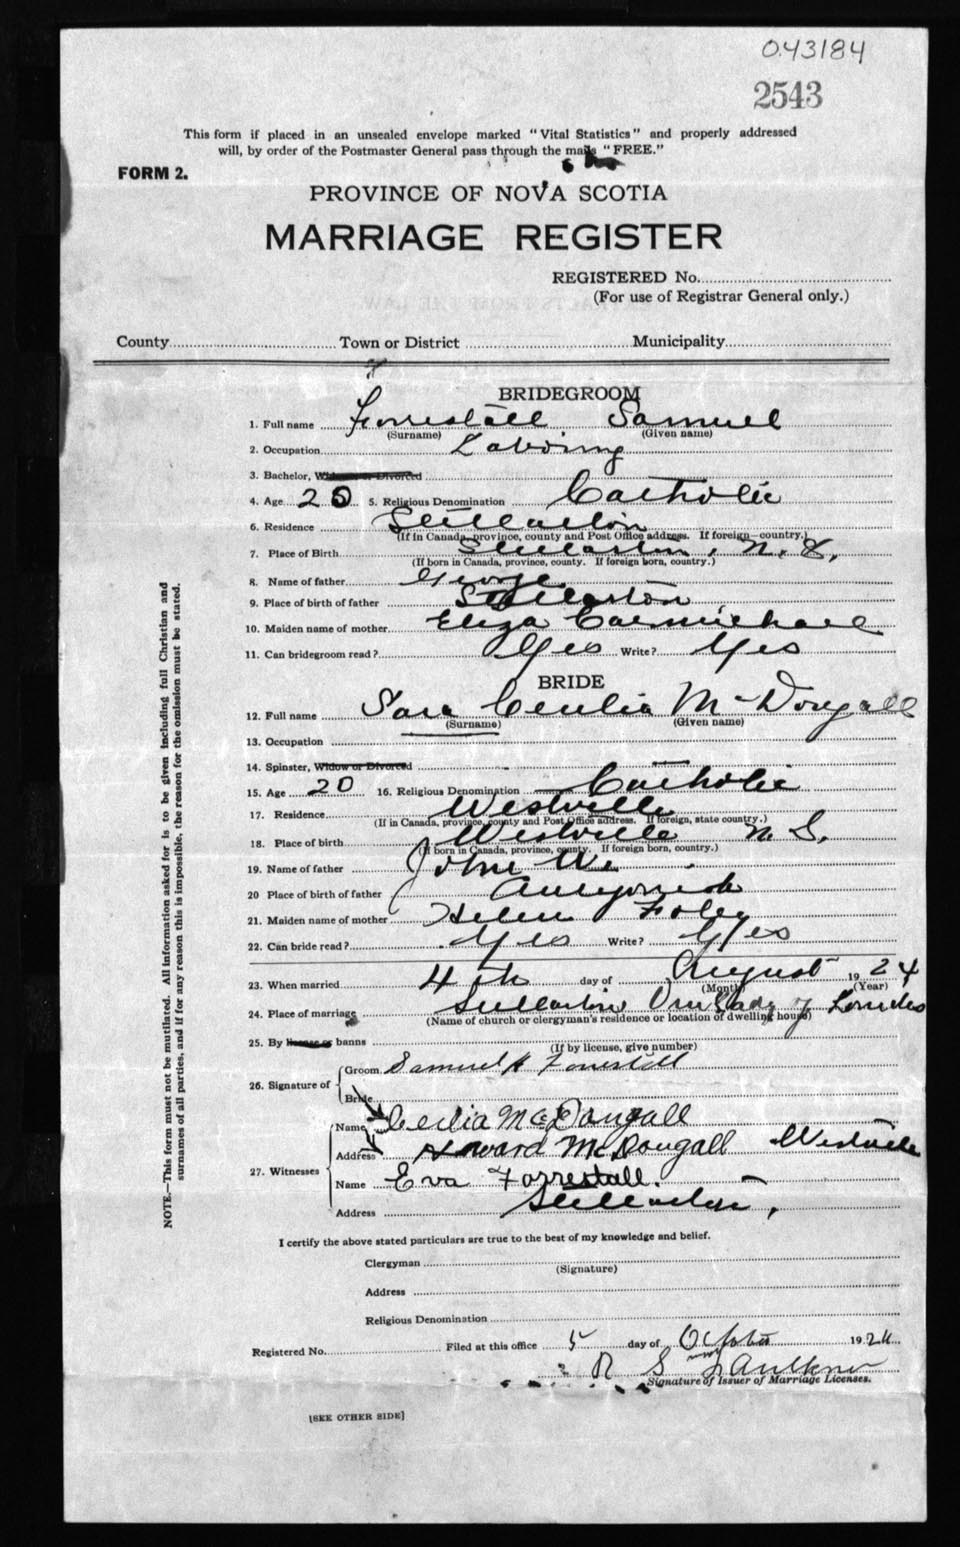 043184
2543
This form if placed in an unsealed envelope marked "Vital Statistics" and properly addressed
will, by order of the Postmaster General pass through the mails "FREE."
FORM 2.
PROVINCE OF NOVA SCOTIA
MARRIAGE REGISTER
REGISTERED No.
(For use of Registrar General only.)
County Town or District Municipality
BRIDEGROOM
1. Full name Forrestall Samuel
(Surname) (Given name)
2. Occupation Laboring
3. Bachelor, Widower or Divorced
4. Age 20 5. Religious Denomination Catholic
6. Residence Stellarton
(If in Canada, province, county and Post Office address. If foreign—country.)
7. Place of Birth Stellarton, N.S.
(If born in Canada, province, county. If foreign born, country.)
8. Name of father George
9. Place of birth of father Stellarton
10. Maiden name of mother Eliza Carmichael
11. Can bridegroom read? Yes Write? Yes
BRIDE
12. Full name Sara Cecilia McDougall
(Surname) (Given name)
13. Occupation
14. Spinster, Widow or Divorced
15. Age 20 16. Religious Denomination Catholic
17. Residence Westville
(If in Canada, province, county and Post Office address. If foreign, state country.)
18. Place of birth Westville N.S.
(If born in Canada, province, county. If foreign born, country.)
19. Name of father John
20 Place of birth of father Antigonish
21. Maiden name of mother Helen Foley
22. Can bride read? Yes Write? Yes
23. When married 4th day of August 1924
(Month) (Year)
24. Place of marriage Stellarton Our Lady of Lourdes
(Name of church or clergyman's residence or location of dwelling house)
25. By license or banns
(If by license, give number)
26. Signature of Groom Samuel Forrestall
Bride
27. Witnesses Name Cecilia McDougall
Address Howard McDougall Westville
Name Eva Forrestall.
Address Stellarton,
I certify the above stated particulars are true to the best of my knowledge and belief.
Clergyman
(Signature)
Address
Religious Denomination
Registered No. Filed at this office 5 day of October 1924
R S Faulkner
Signature of Issuer of Marriage Licenses.
[SEE OTHER SIDE]
NOTE.—This form must not be mutilated. All information asked for is to be given including full Christian and
surnames of all parties, and if for any reason this is impossible, the reason for the omission must be stated.